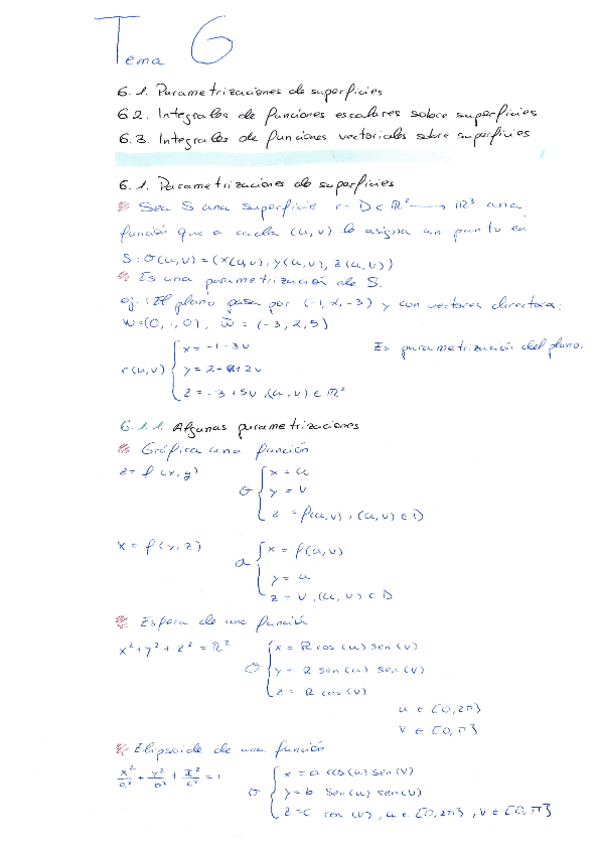 Tema 6
6.1. Parametrizaciones de superficies
6.2. Integrales de funciones escalares sobre superficies
6.3. Integrales de funciones vectoriales sobre superficies
6.1. Parametrizaciones de superficies
Sea S una superficie r = D ⊂ ℝ² → ℝ³ una
función que a cada (u,v) le asigna un punto en
S: σ(u,v) = (x(u,v), y(u,v), z(u,v))
Es una parametrización de S.
ej.: El plano pasa por (-1, 2, -3) y con vectores directora:
w=(0, 1, 0), w̄ = (-3, 2, 5)
r(u,v) { x = -1 - 3v
y = 2 + u + 2v
z = -3 + 5v, (u,v) ∈ ℝ²
Es parametrización del plano.
6.1.1. Algunas parametrizaciones
Gráfica una función
z = f(x,y) σ { x = u
y = v
z = f(u,v), (u,v) ∈ D
x = f(y,z) σ { x = f(u,v)
y = u
z = v, (u,v) ∈ D
Esfera de una función
x² + y² + z² = R² σ { x = R cos(u) sen(v)
y = R sen(u) sen(v)
z = R cos(v)
u ∈ [0, 2π]
v ∈ [0, π]
Elipsoide de una función
x²/a² + y²/b² + z²/c² = 1 σ { x = a cos(u) sen(v)
y = b sen(u) sen(v)
z = c cos(v), u ∈ [0, 2π], v ∈ [0, π]